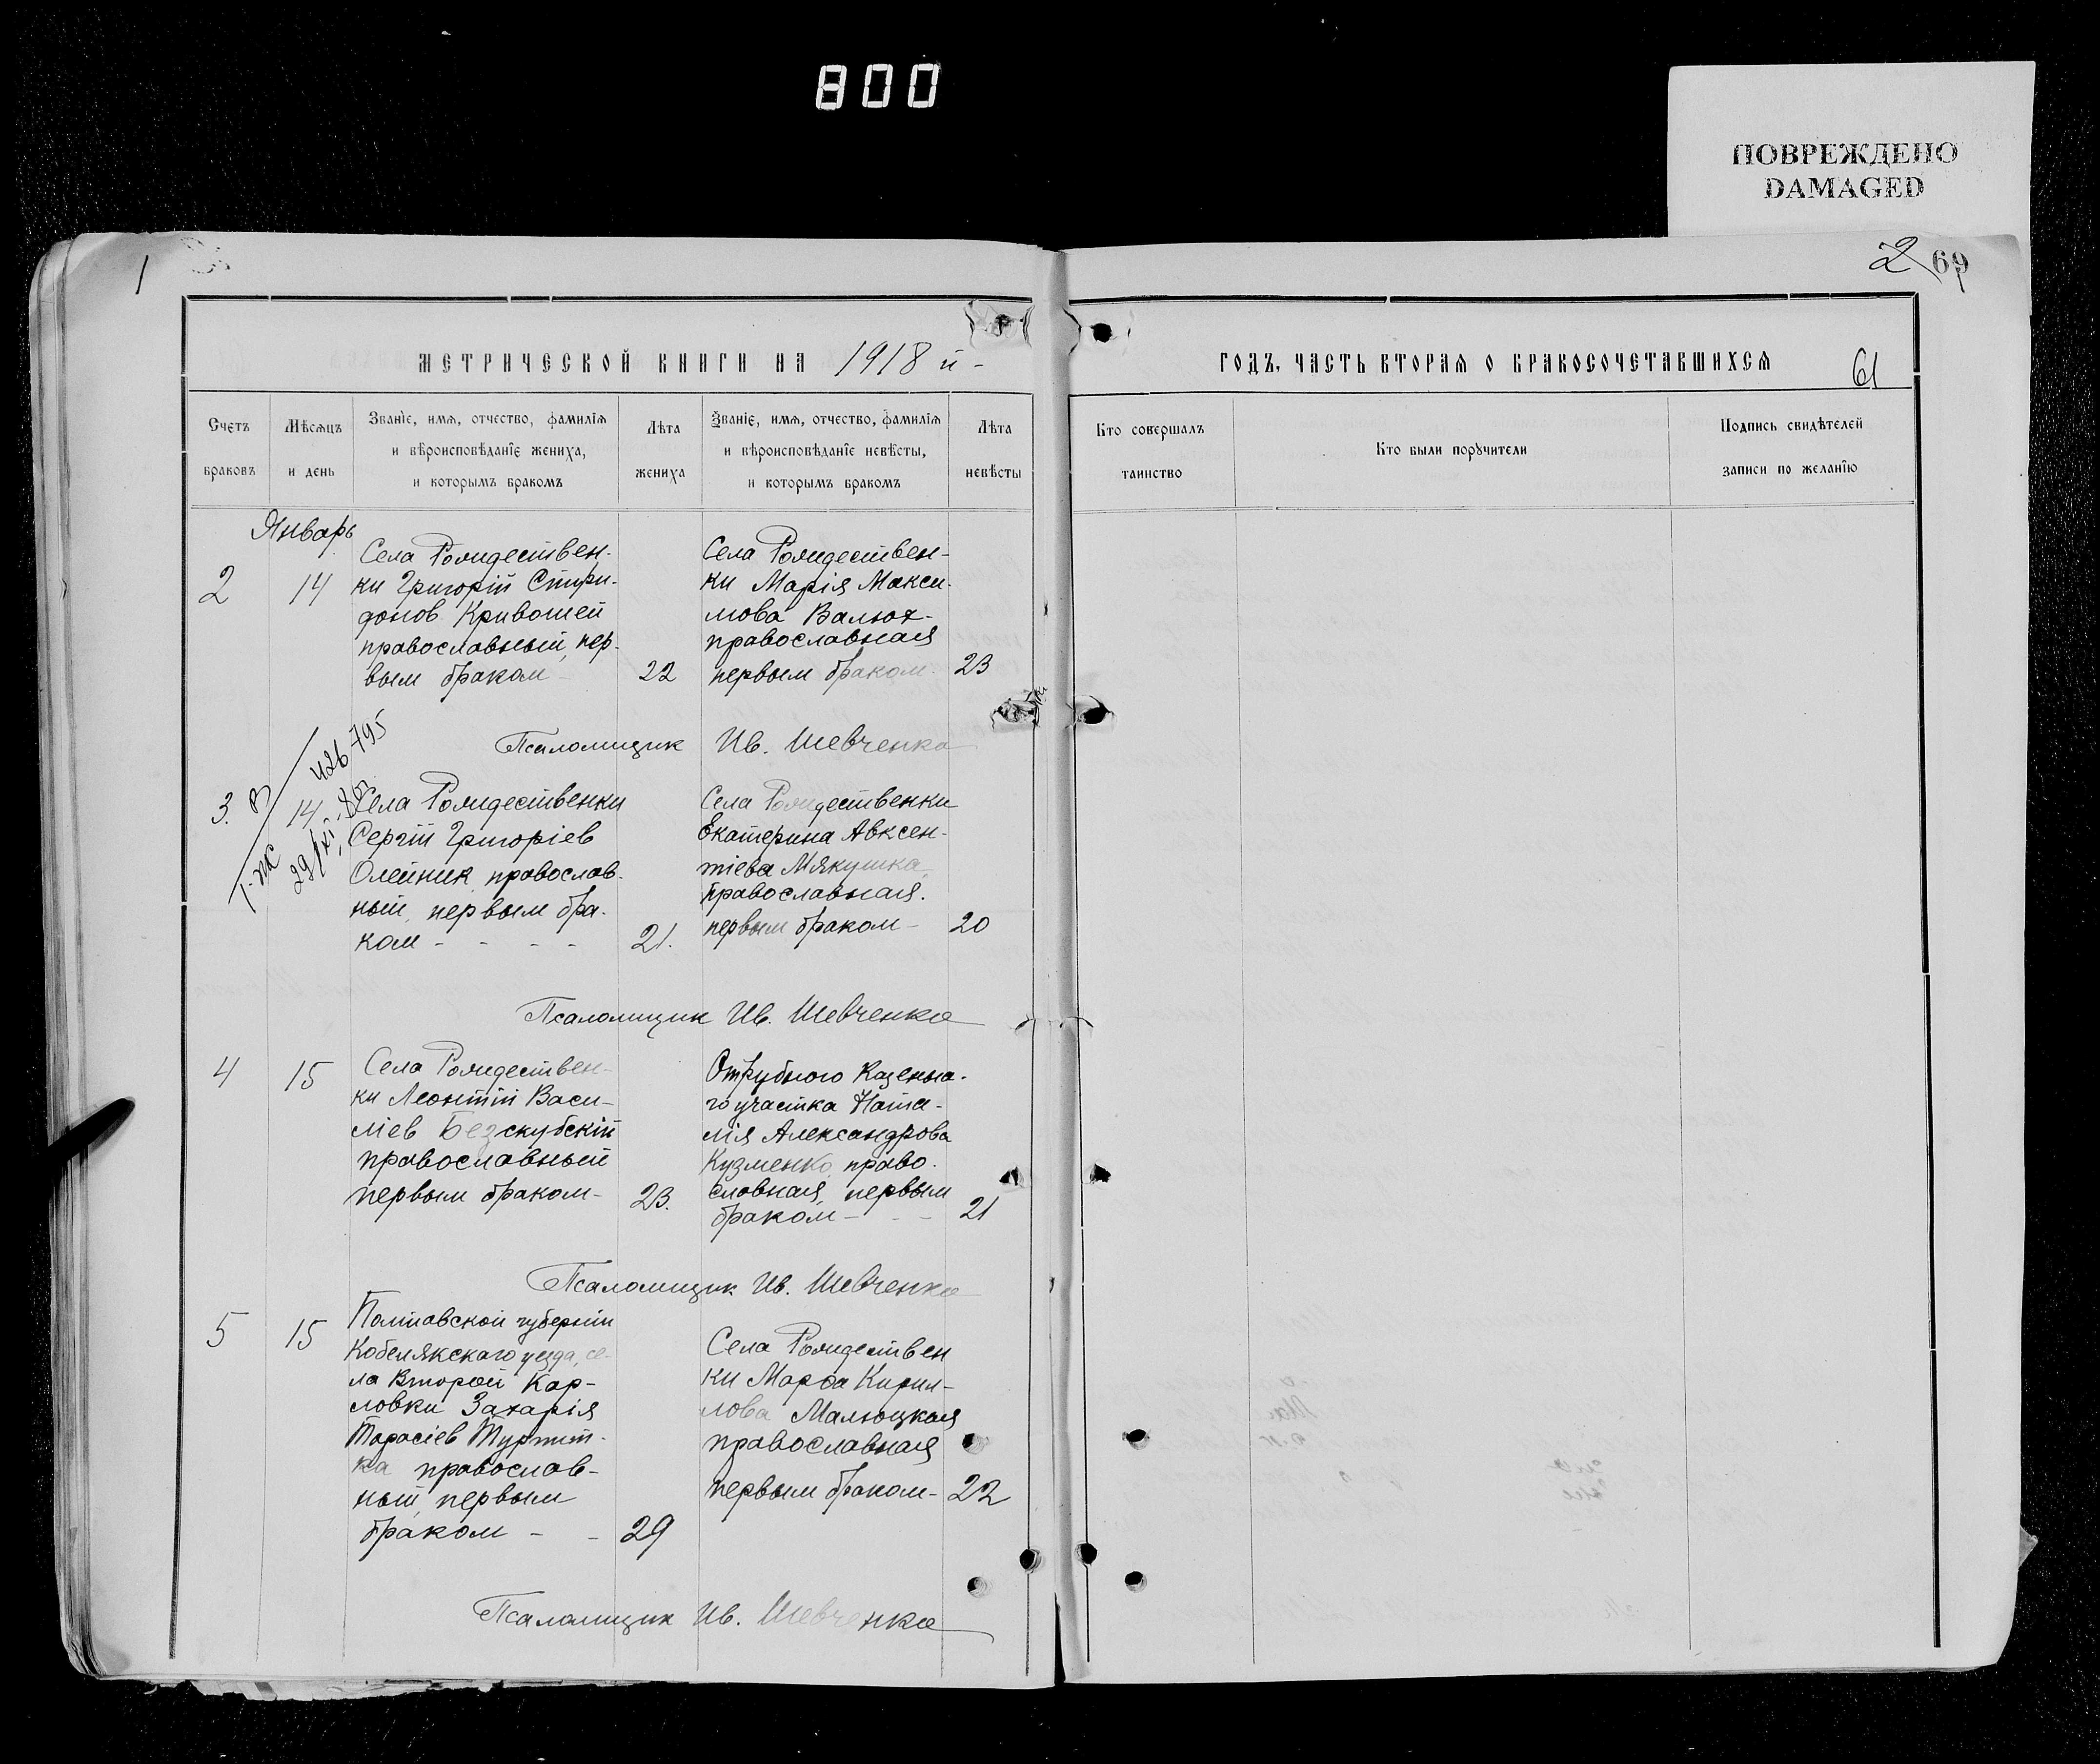 800
ПОВРЕЖДЕНО
DAMAGED
1
2 69
МЕТРИЧЕСКОЙ КНИГИ НА 1918 й -
ГОДЪ, ЧАСТЬ ВТОРАЯ О БРАКОСОЧЕТАВШИХСЯ
61
Счетъ браковъ
Мѣсяцъ и день
Званіе, имя, отчество, фамилія
и вѣроисповѣданіе жениха,
и которымъ бракомъ
Лѣта жениха
Званіе, имя, отчество, фамилія
и вѣроисповѣданіе невѣсты,
и которымъ бракомъ
Лѣта невѣсты
Кто совершалъ таинство
Кто были поручители
Подпись свидѣтелей
записи по желанію
Январь
2
14
Села Рождествен-
ки Григорій Спири-
донов Кривошей
православный, пер-
вым браком
22
Села Рождествен-
ки Марія Макси-
мова Валюх-
православная
первым браком.
23
Псаломщик Ив. Шевченко
426795
3.
14
Села Рождественки
Сергій Григоріев
Олейник, православ-
ный, первым бра-
ком - - - -
21.
Села Рождественки
Екатерина Авксен-
тіева Мякушка,
православная.
первым браком -
20
Псаломщик Ив. Шевченко
4
15
Села Рождествен-
ки Леонтій Васи-
ліев Безскубскій
православный
первым браком-
23.
Отрубного Казенна-
го участка Ната-
лія Александрова
Кузменко, право-
славная, первым
браком - - -
21
Псаломщик Ив. Шевченко
5
15
Полтавской губерніи
Кобелякскаго уезда, се-
ла Второй Кар-
ловки Захарія
Тарасіев
ка православ-
ный, первым
браком - -
29
Села Рождествен
ки Марфа Кирил-
лова Малюцкая
православная
первым браком-
22
Псаломщик Ив. Шевченко